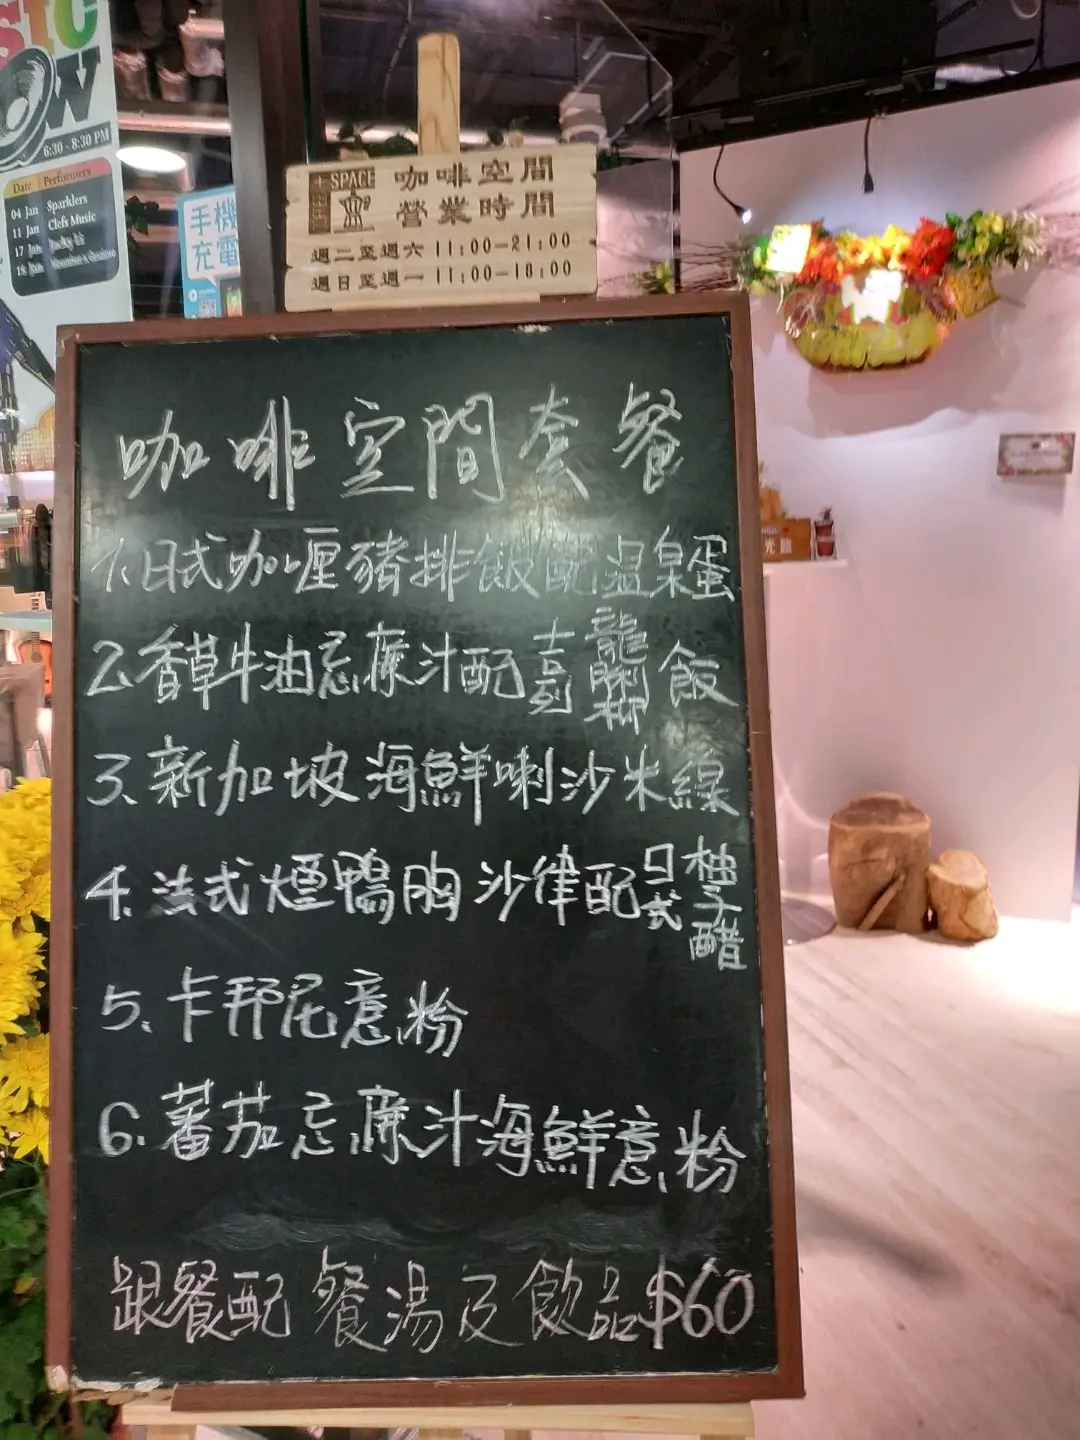 SIC
OW
6:30 - 8:30 PM
Date Performers
04 Jan Sparklers
11 Jan Clefs Music
17 Jan
18 Jan
手機
充電
SPACE
咖啡空間
營業時間
週二至週六 11:00-21:00
週日至週一 11:00-18:00
咖啡空間套餐
1.日式咖喱豬排飯配温泉蛋
2.香草牛油忌廉汁配吉列龍脷柳飯
3.新加坡海鮮喇沙米線
4.法式煙鴨胸沙律配日式柚子醋
5.卡邦尼意粉
6.蕃茄忌廉汁海鮮意粉
跟餐配餐湯及飲品$60